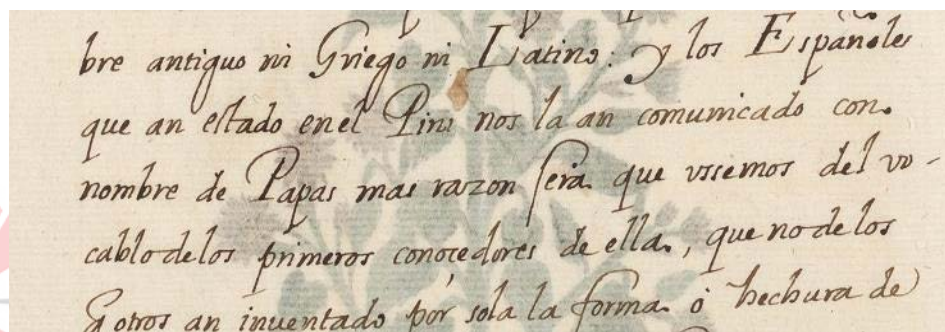 bre antiguo ni Griego ni Latino: y los Españoles
que an estado enel Piru nos la an comunicado con
nombre de Papas mas razon sería que vsemos del vo-
cablo delos primeros conocedores de ella, que no de los
q̃ otros an inuentado pór sola la forma ó hechura de